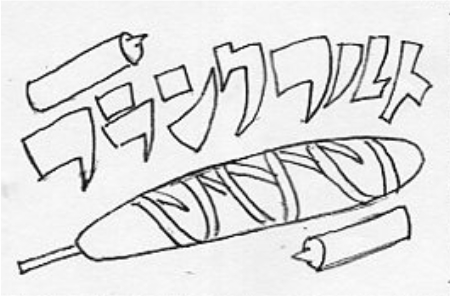 フランクフルト